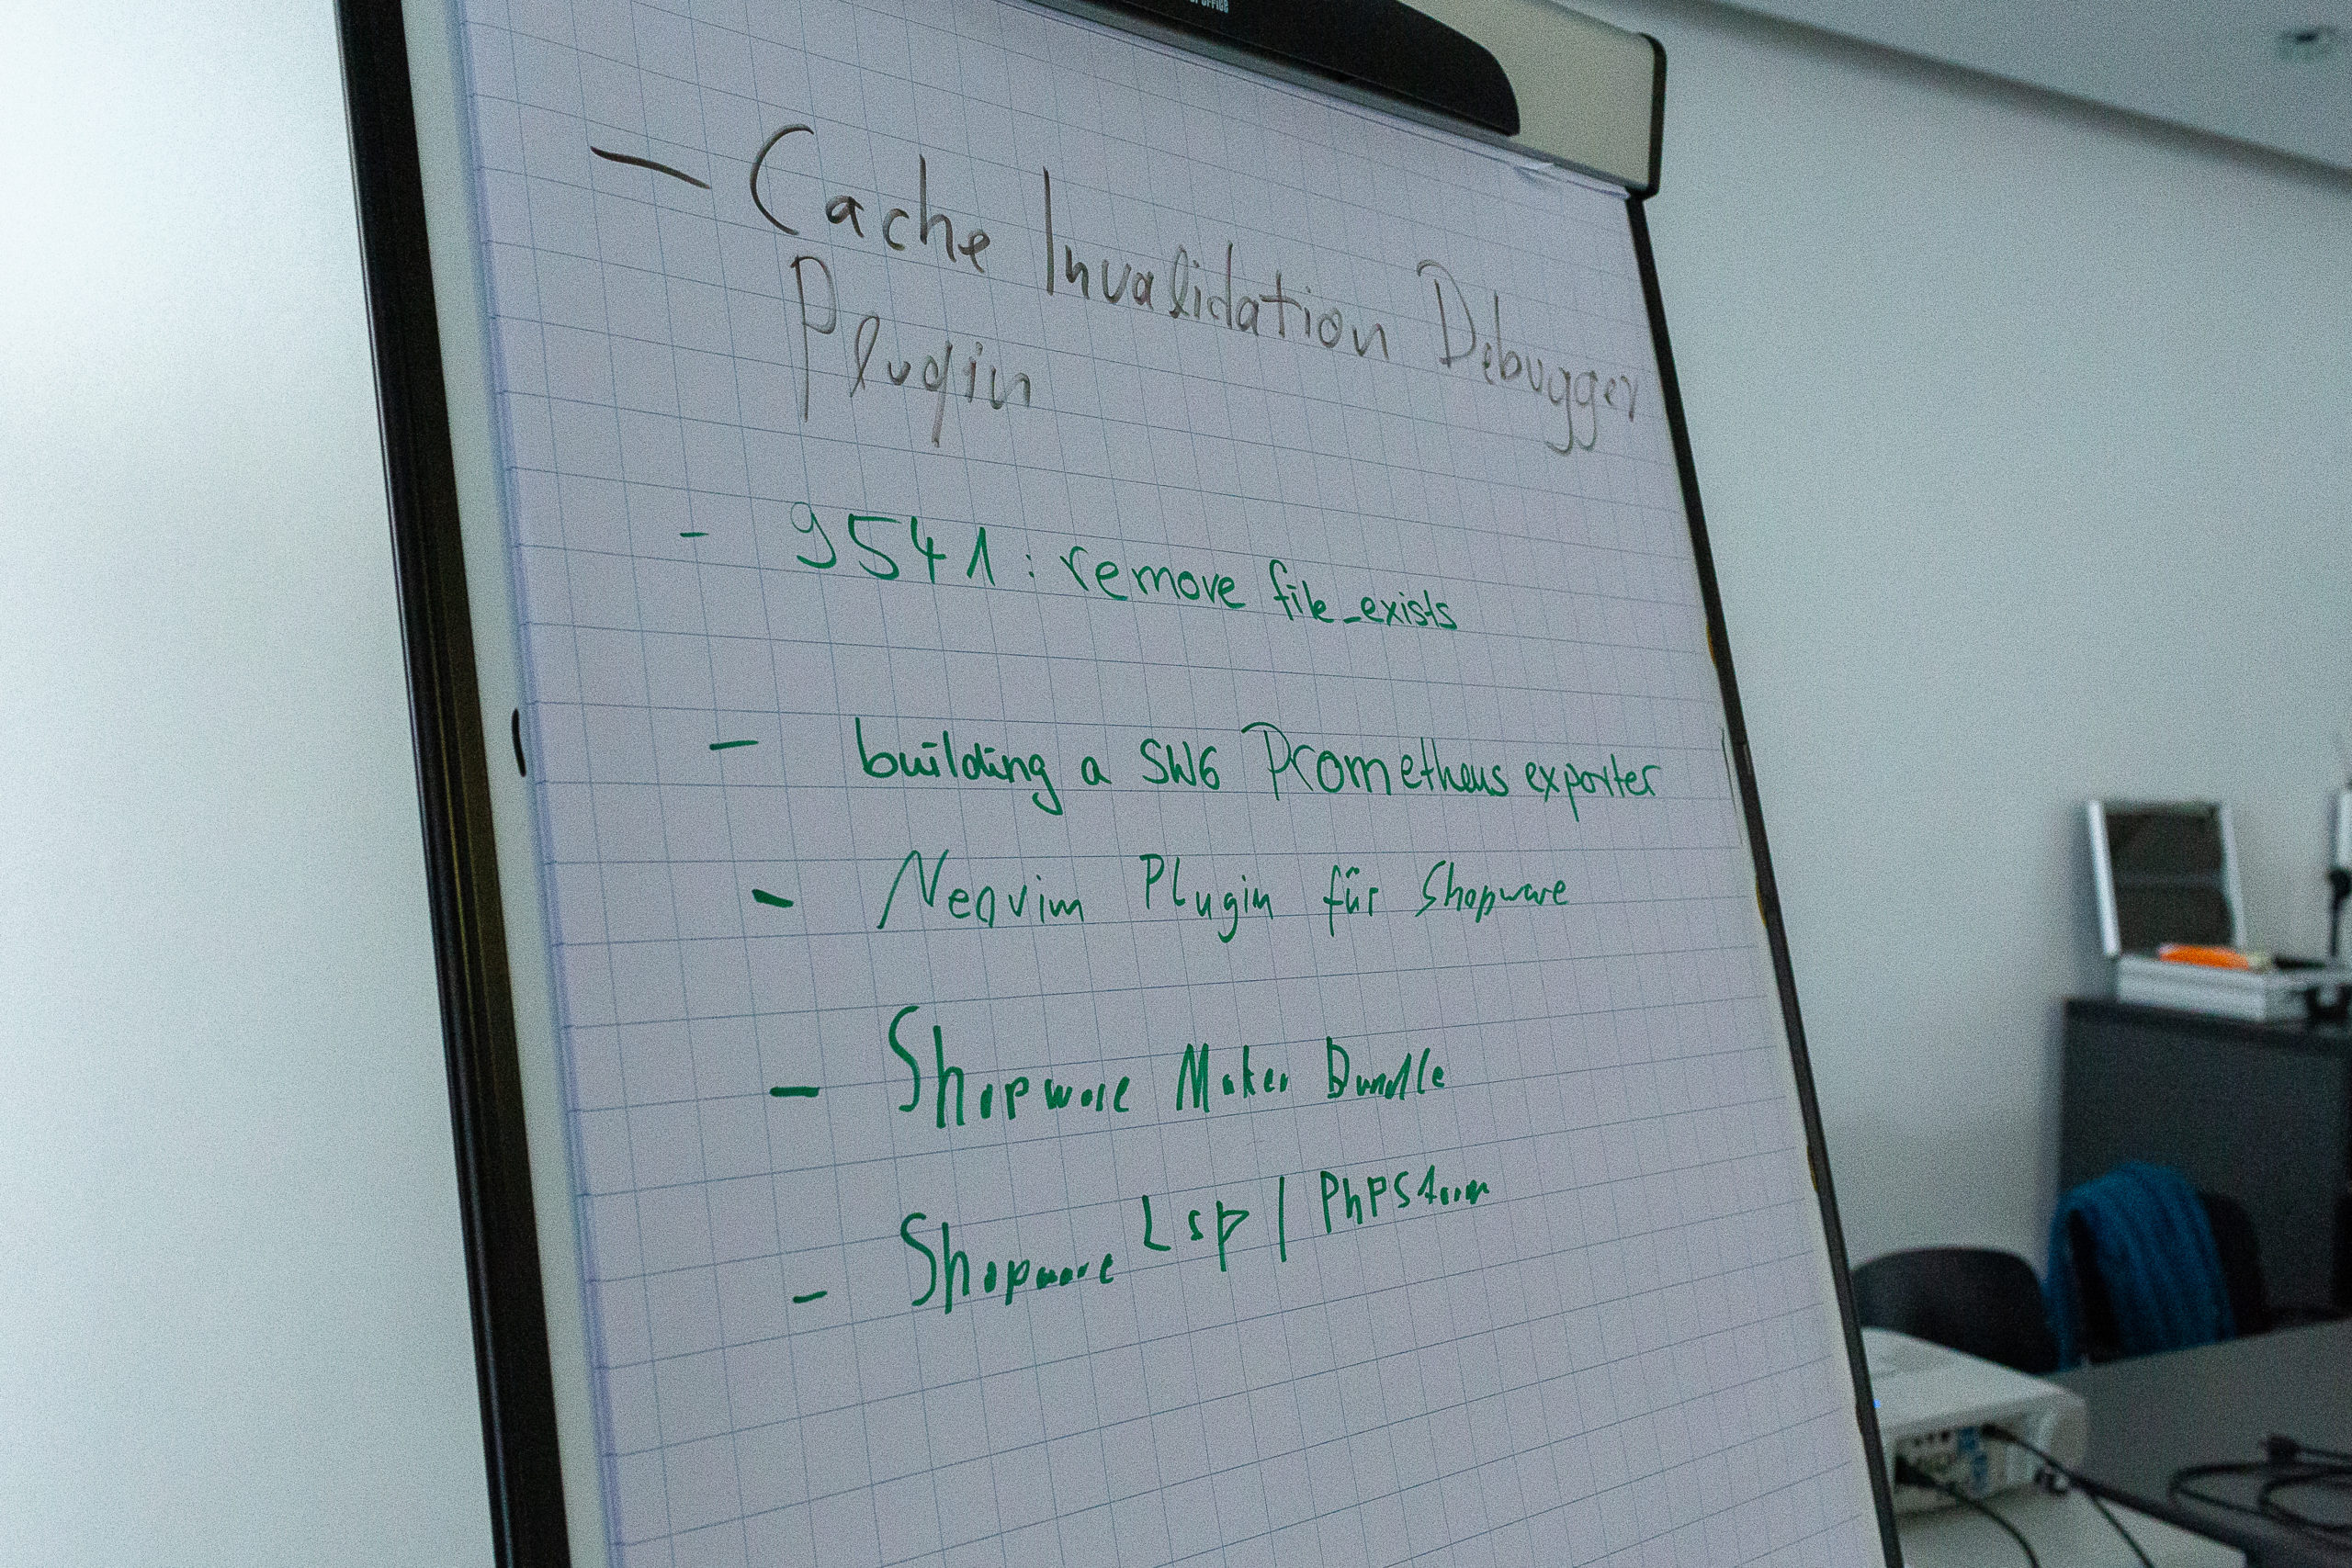 - Cache Invalidation Debugger
Plugin
- 9541: remove file_exists
- building a SW6 Prometheus exporter
- Neovim Plugin für Shopware
- Shopware Maker Bundle
- Shopware Lsp / PhPStorm